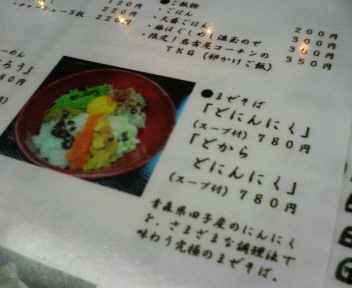 ●ご飯物
・ごはん 200円
・大盛ごはん 300円
・豚ほぐしめし温玉のせ 300円
・限定!名古屋コーチンの
TKG(卵かけご飯) 350円
120円
220円
●まぜそば
「どにんにく」
(スープ付) 780円
「どから
どにんにく」
(スープ付) 780円
青森県田子産のにんにく
を、さまざまな調理法で
味わう究極のまぜそば。